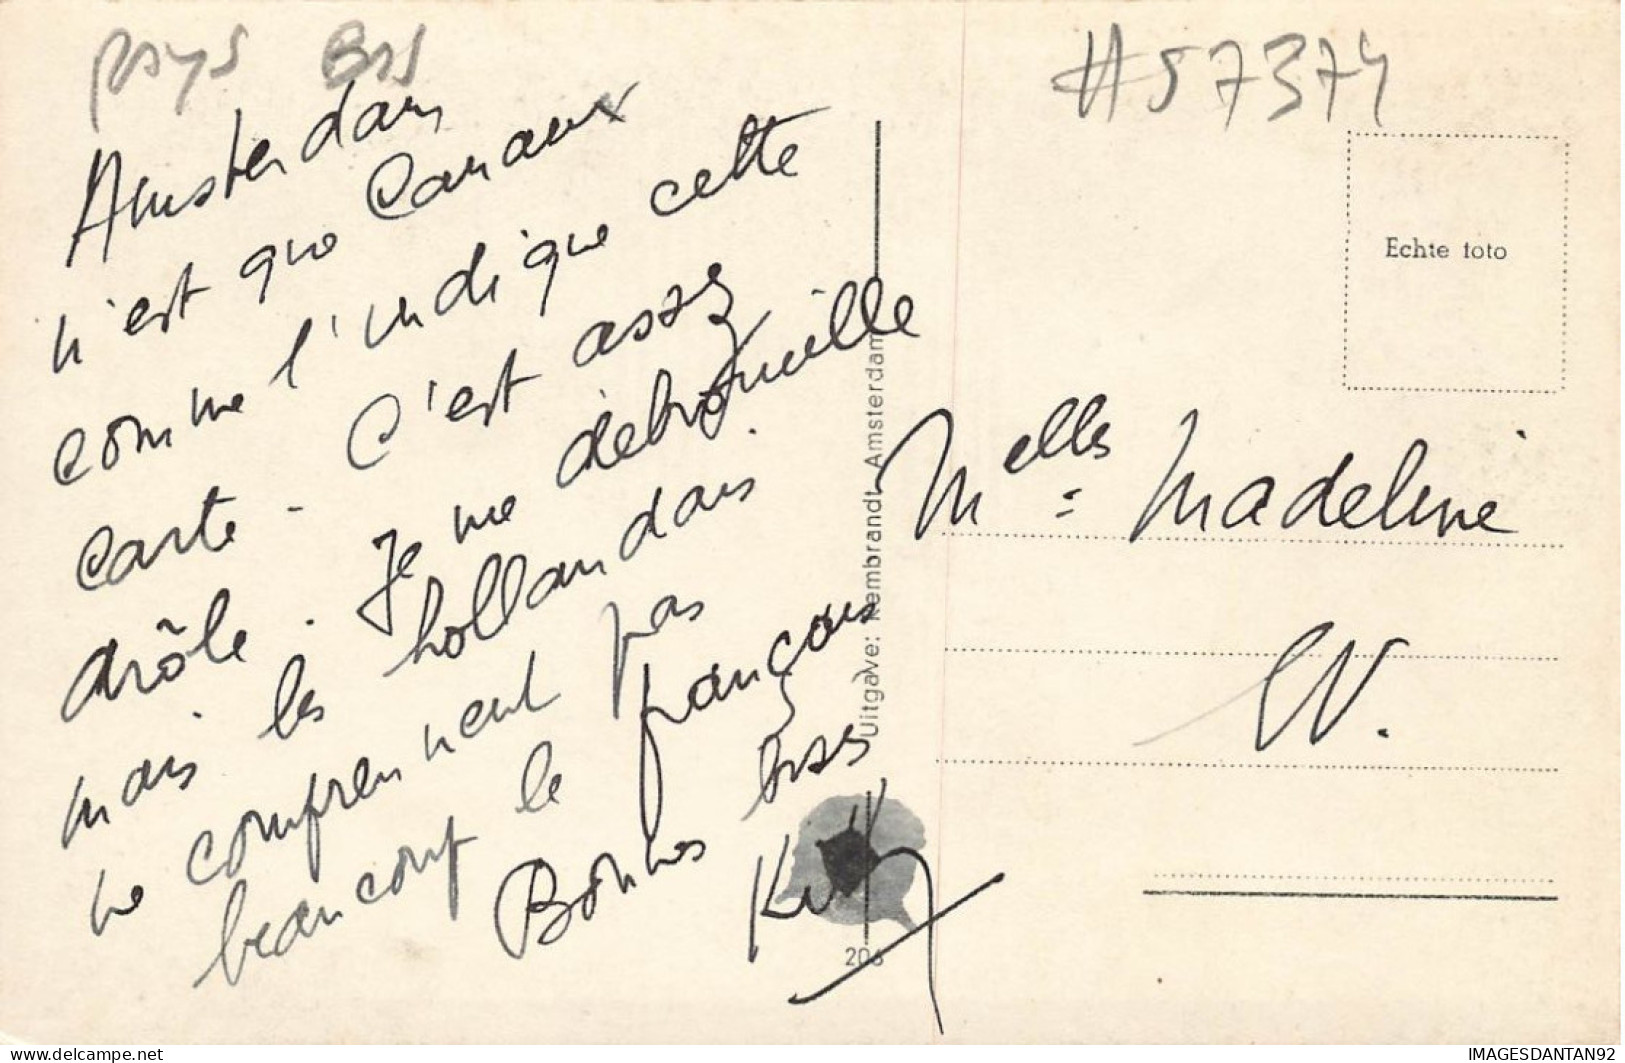 pays Bas
#57374
Amsterdam
n'est que Canaux
comme l'indique cette
carte - C'est assez
drôle. Je me débrouille
mais les hollandais
ne comprennent pas
beaucoup le français
Bonnes bises
Kitty
Uitgave: Rembrandt Amsterdam
206
Echte foto
Melles Madeleine
EV.
www.delcampe.net
IMAGESDANTAN92